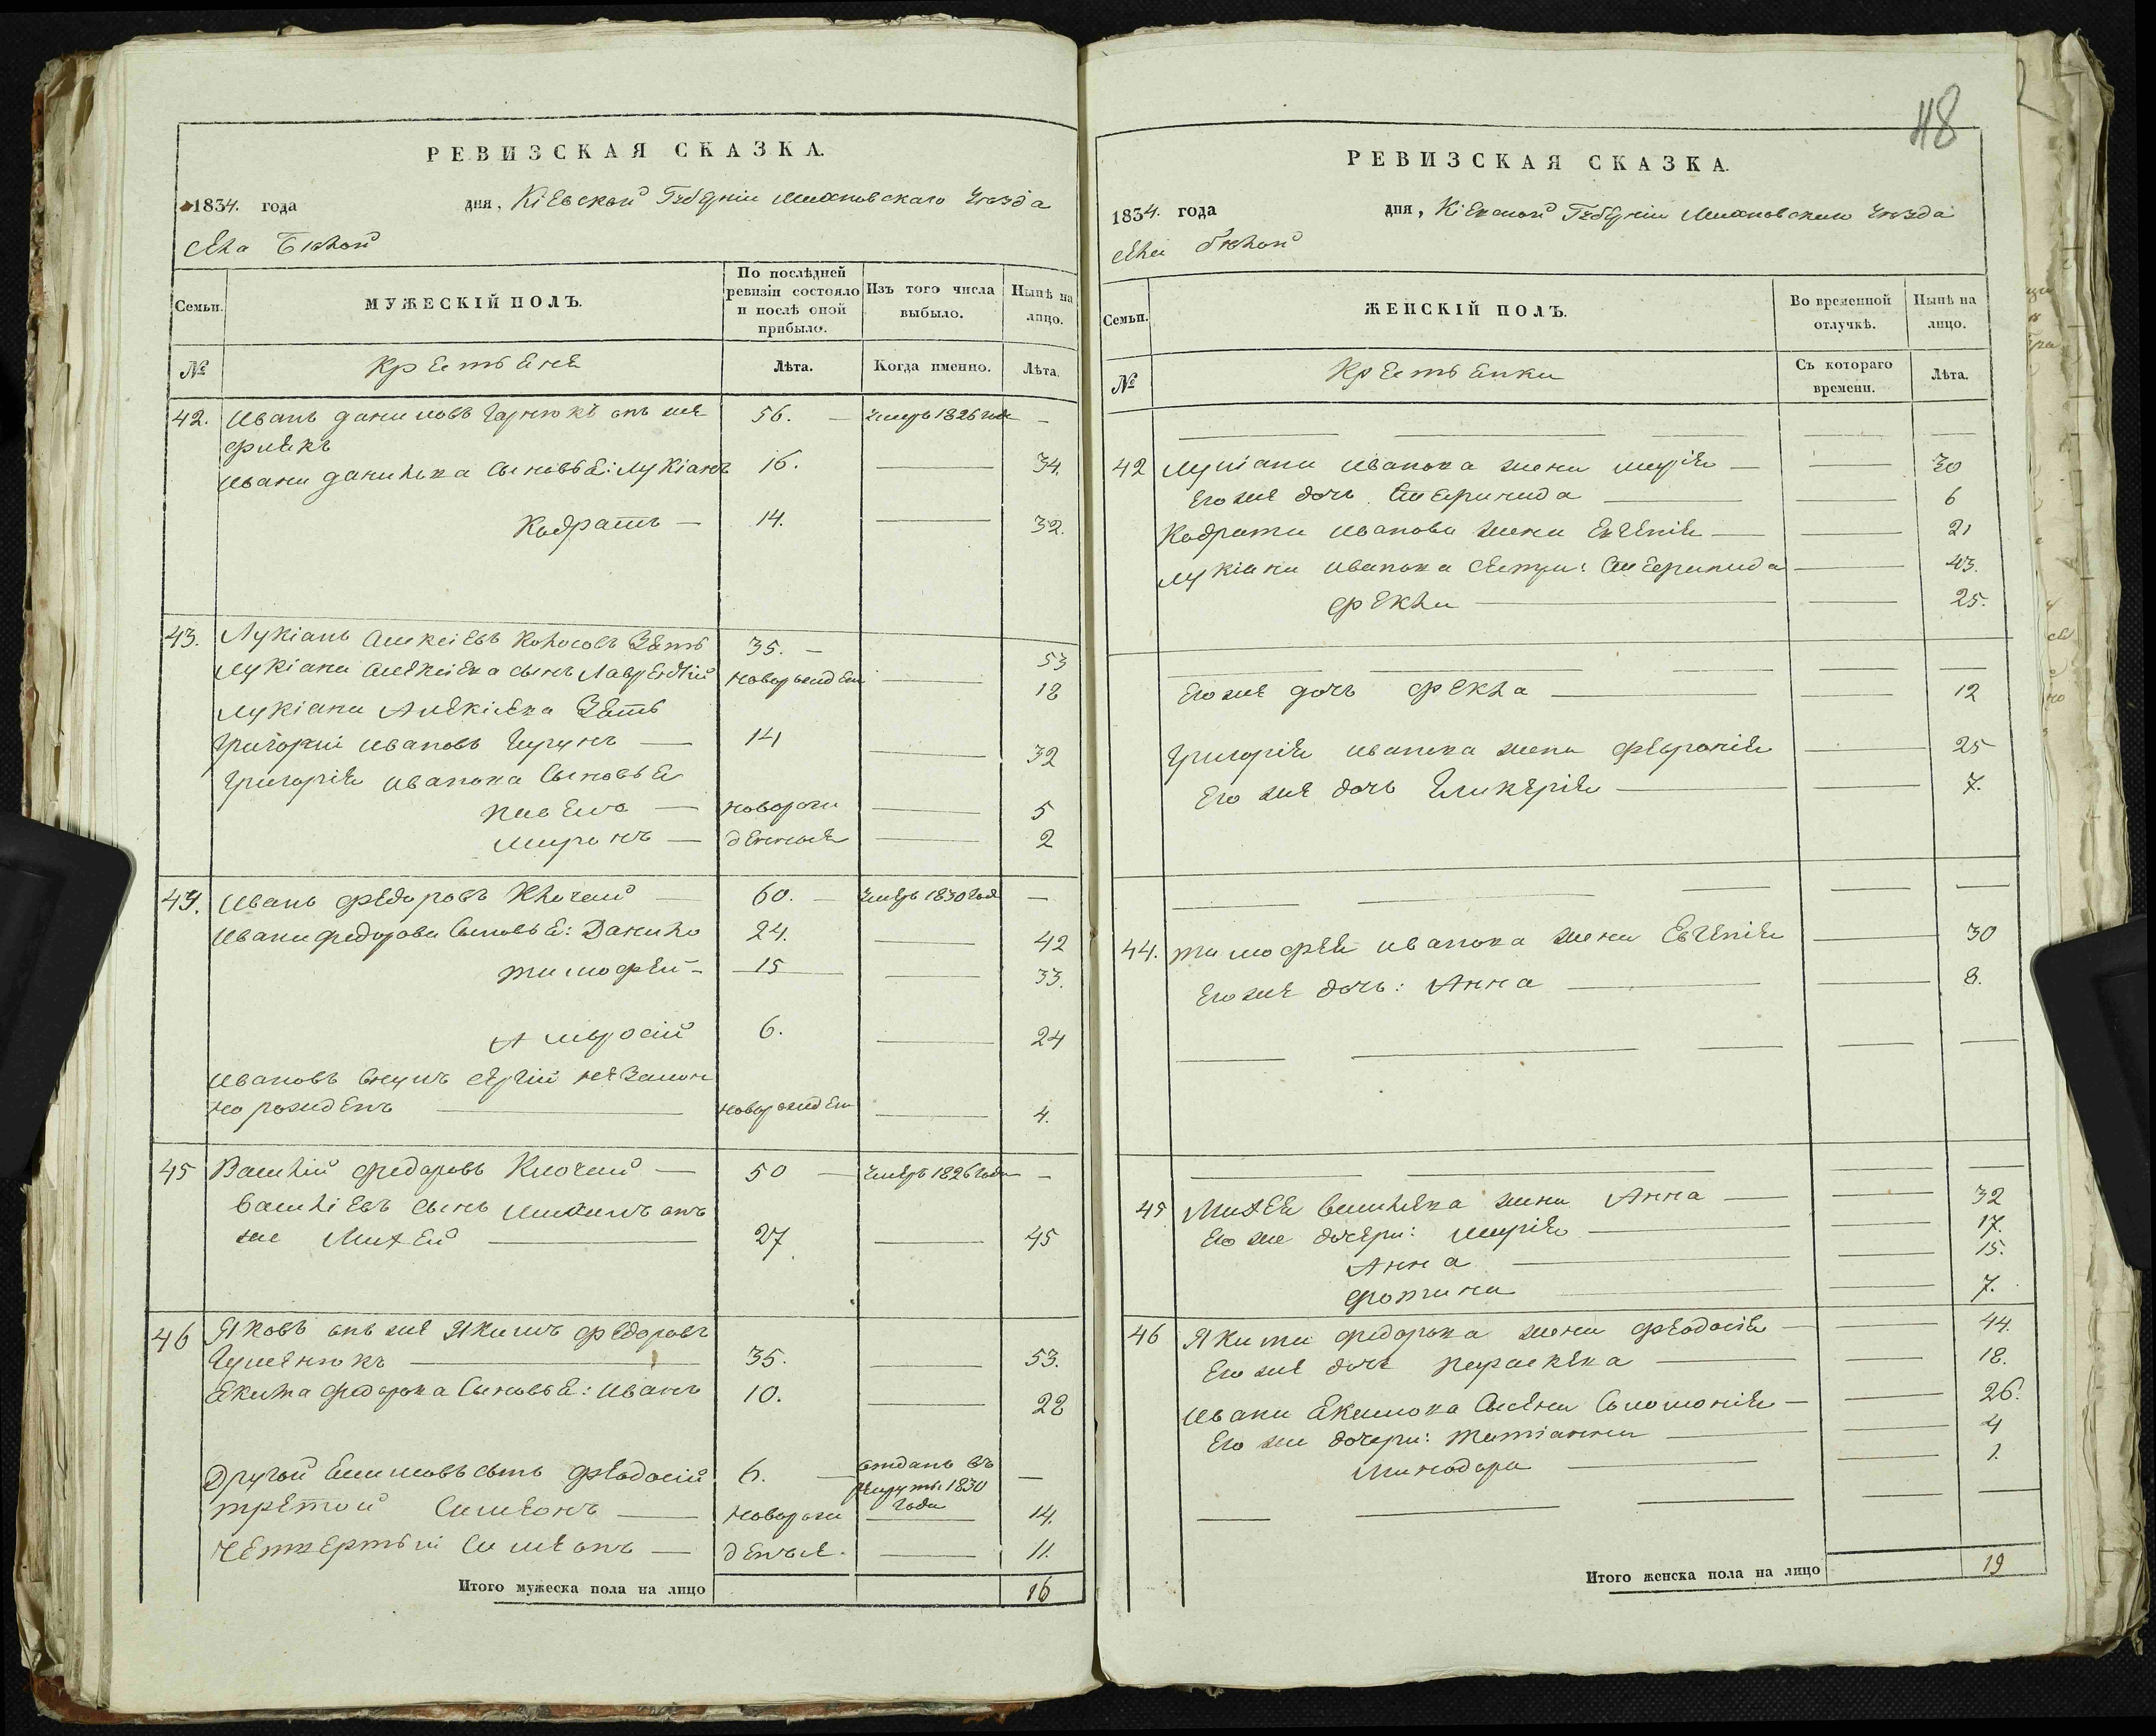 РЕВИЗСКАЯ СКАЗКА.
1834. года дня, Кіевской Губерніи Махновскаго Уезда
села Белой
Семьи. МУЖЕСКІЙ ПОЛЪ. По послѣдней ревизіи состояло и послѣ оной прибыло. Изъ того числа выбыло. Нынѣ на лицо.
№ Крестьяне Лѣта. Когда именно. Лѣта.
42. Иванъ Даниловъ онъ же 56. — умеръ 1826 года —
Ивана Данилова сыновья: Лукіанъ 16. — 34.
Кодратъ — 14. — 32.
43. Лукіанъ Алексіевъ Колосовъ Зять 35. — 53
Лукіана Алексіева сынъ Лаврентій новорожден — 18
Лукіана Алексіева Зять
Григорій Ивановъ — 14 — 32
Григорія Иванова Сыновья
Павелъ — новорож — 5
Миронъ — денные — 2
44. Иванъ Федоровъ Клочай — 60. — умеръ 1830 года —
Ивана Федорова Сыновья: Данило 24. — 42
Тимофей — 15 — 33.
Амвросій 6. — 24
Ивановъ внукъ Сергій незакон
но рожденъ — новорожден — 4.
45 Василій Федоровъ Клочай — 50 — умеръ 1826 года —
Василіевъ сынъ онъ
же Матвей — 27. — 45
46 Яковъ онъ же Якимъ Федоровъ
— 35. — 53.
Екима Федорова Сыновья: Иванъ 10. — 28
Другой сынъ Феодосій 6. — отданъ въ рекруты 1830 года —
третой Симеонъ — новорож — 14.
Четвертый Симеонъ — денные. — 11.
Итого мужеска пола на лицо 16
48
РЕВИЗСКАЯ СКАЗКА.
1834. года дня, Кіевской Губерніи Махновскаго Уезда
села Белой
Семьи. ЖЕНСКІЙ ПОЛЪ. Во временной отлучкѣ. Нынѣ на лицо.
№ Крестьянки Съ котораго времени. Лѣта.
42 Лукіана Иванова жена Марія — 30
Его же дочь — 6
Кодрата Иванова жена Евгенія — 21
Лукіана Иванова сестры: — 43.
Фекла — 25.
Его же дочь Фекла — 12
Григорія Иванова жена Февронія — 25
Его же дочь Гликерія — 7.
44. Тимофея Иванова жена Евгенія — 30
Его же дочь: Анна — 8.
45 Матвея Василіева жена Анна — 32
Его же дочери: Марія — 17.
Анна — 15.
Фотина — 7.
46 Якима Федорова жена Феодосія — 44.
Его же дочь Параскева — 18.
Ивана Екимова жена Соломонія — 26.
Его же дочери: Татіанна — 4
Минодора — 1.
Итого женска пола на лицо 19